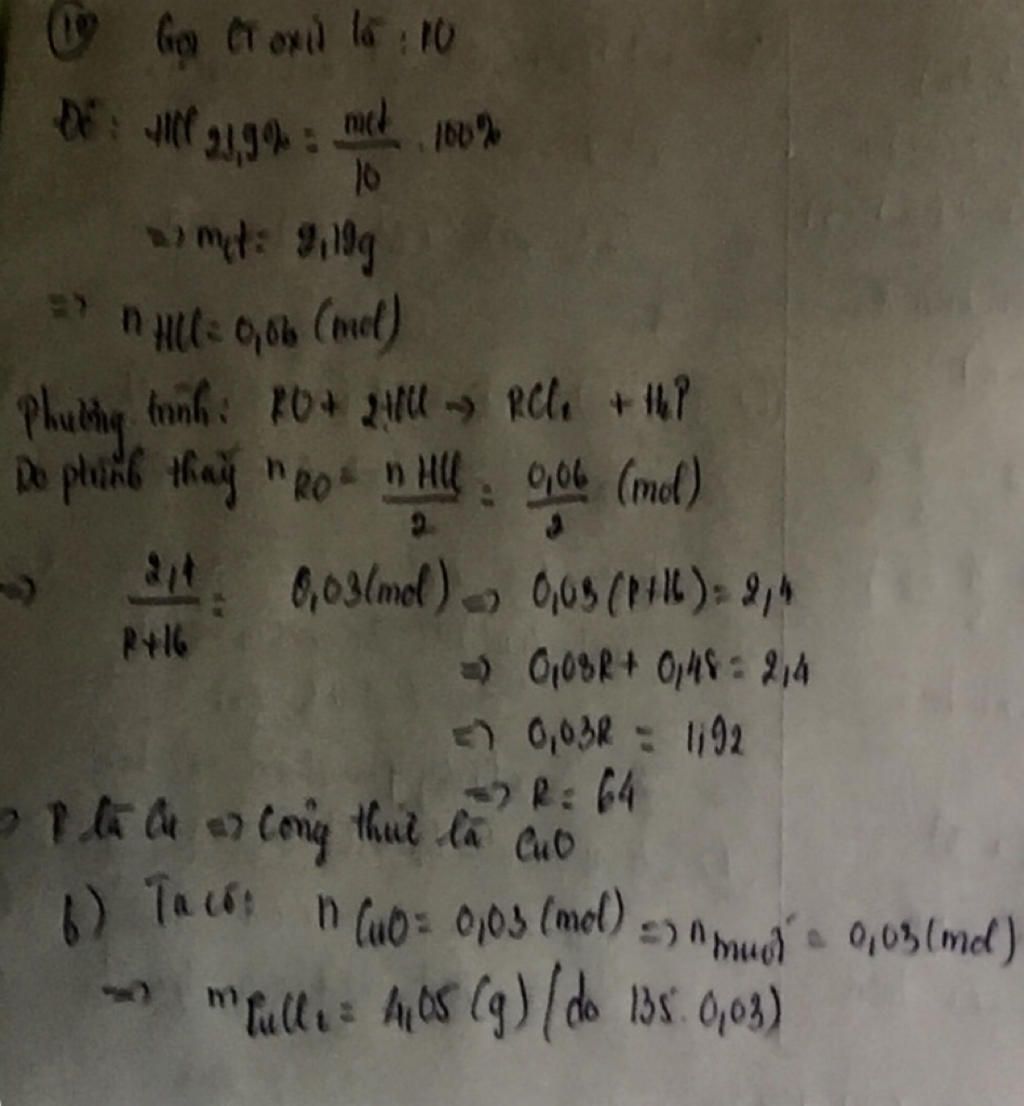 10 Gọi CT oxit là : RO
Đề: HCl 21,9% = mct/10 . 100%
=> mct = 2,19g
=> n HCl = 0,06 (mol)
Phương trình: RO + 2HCl → RCl₂ + H₂O
Do phtrình thấy n RO = n HCl/2 = 0,06/2 (mol)
=> 2,4/R+16 = 0,03(mol) => 0,03(R+16) = 2,4
=> 0,03R + 0,48 = 2,4
=> 0,03R = 1,92
=> R = 64
=> R là Cu => Công thức là CuO
b) Ta có: n CuO = 0,03 (mol) => n muối = 0,03(mol)
=> m CuCl₂ = 4,05 (g) (do 135. 0,03)